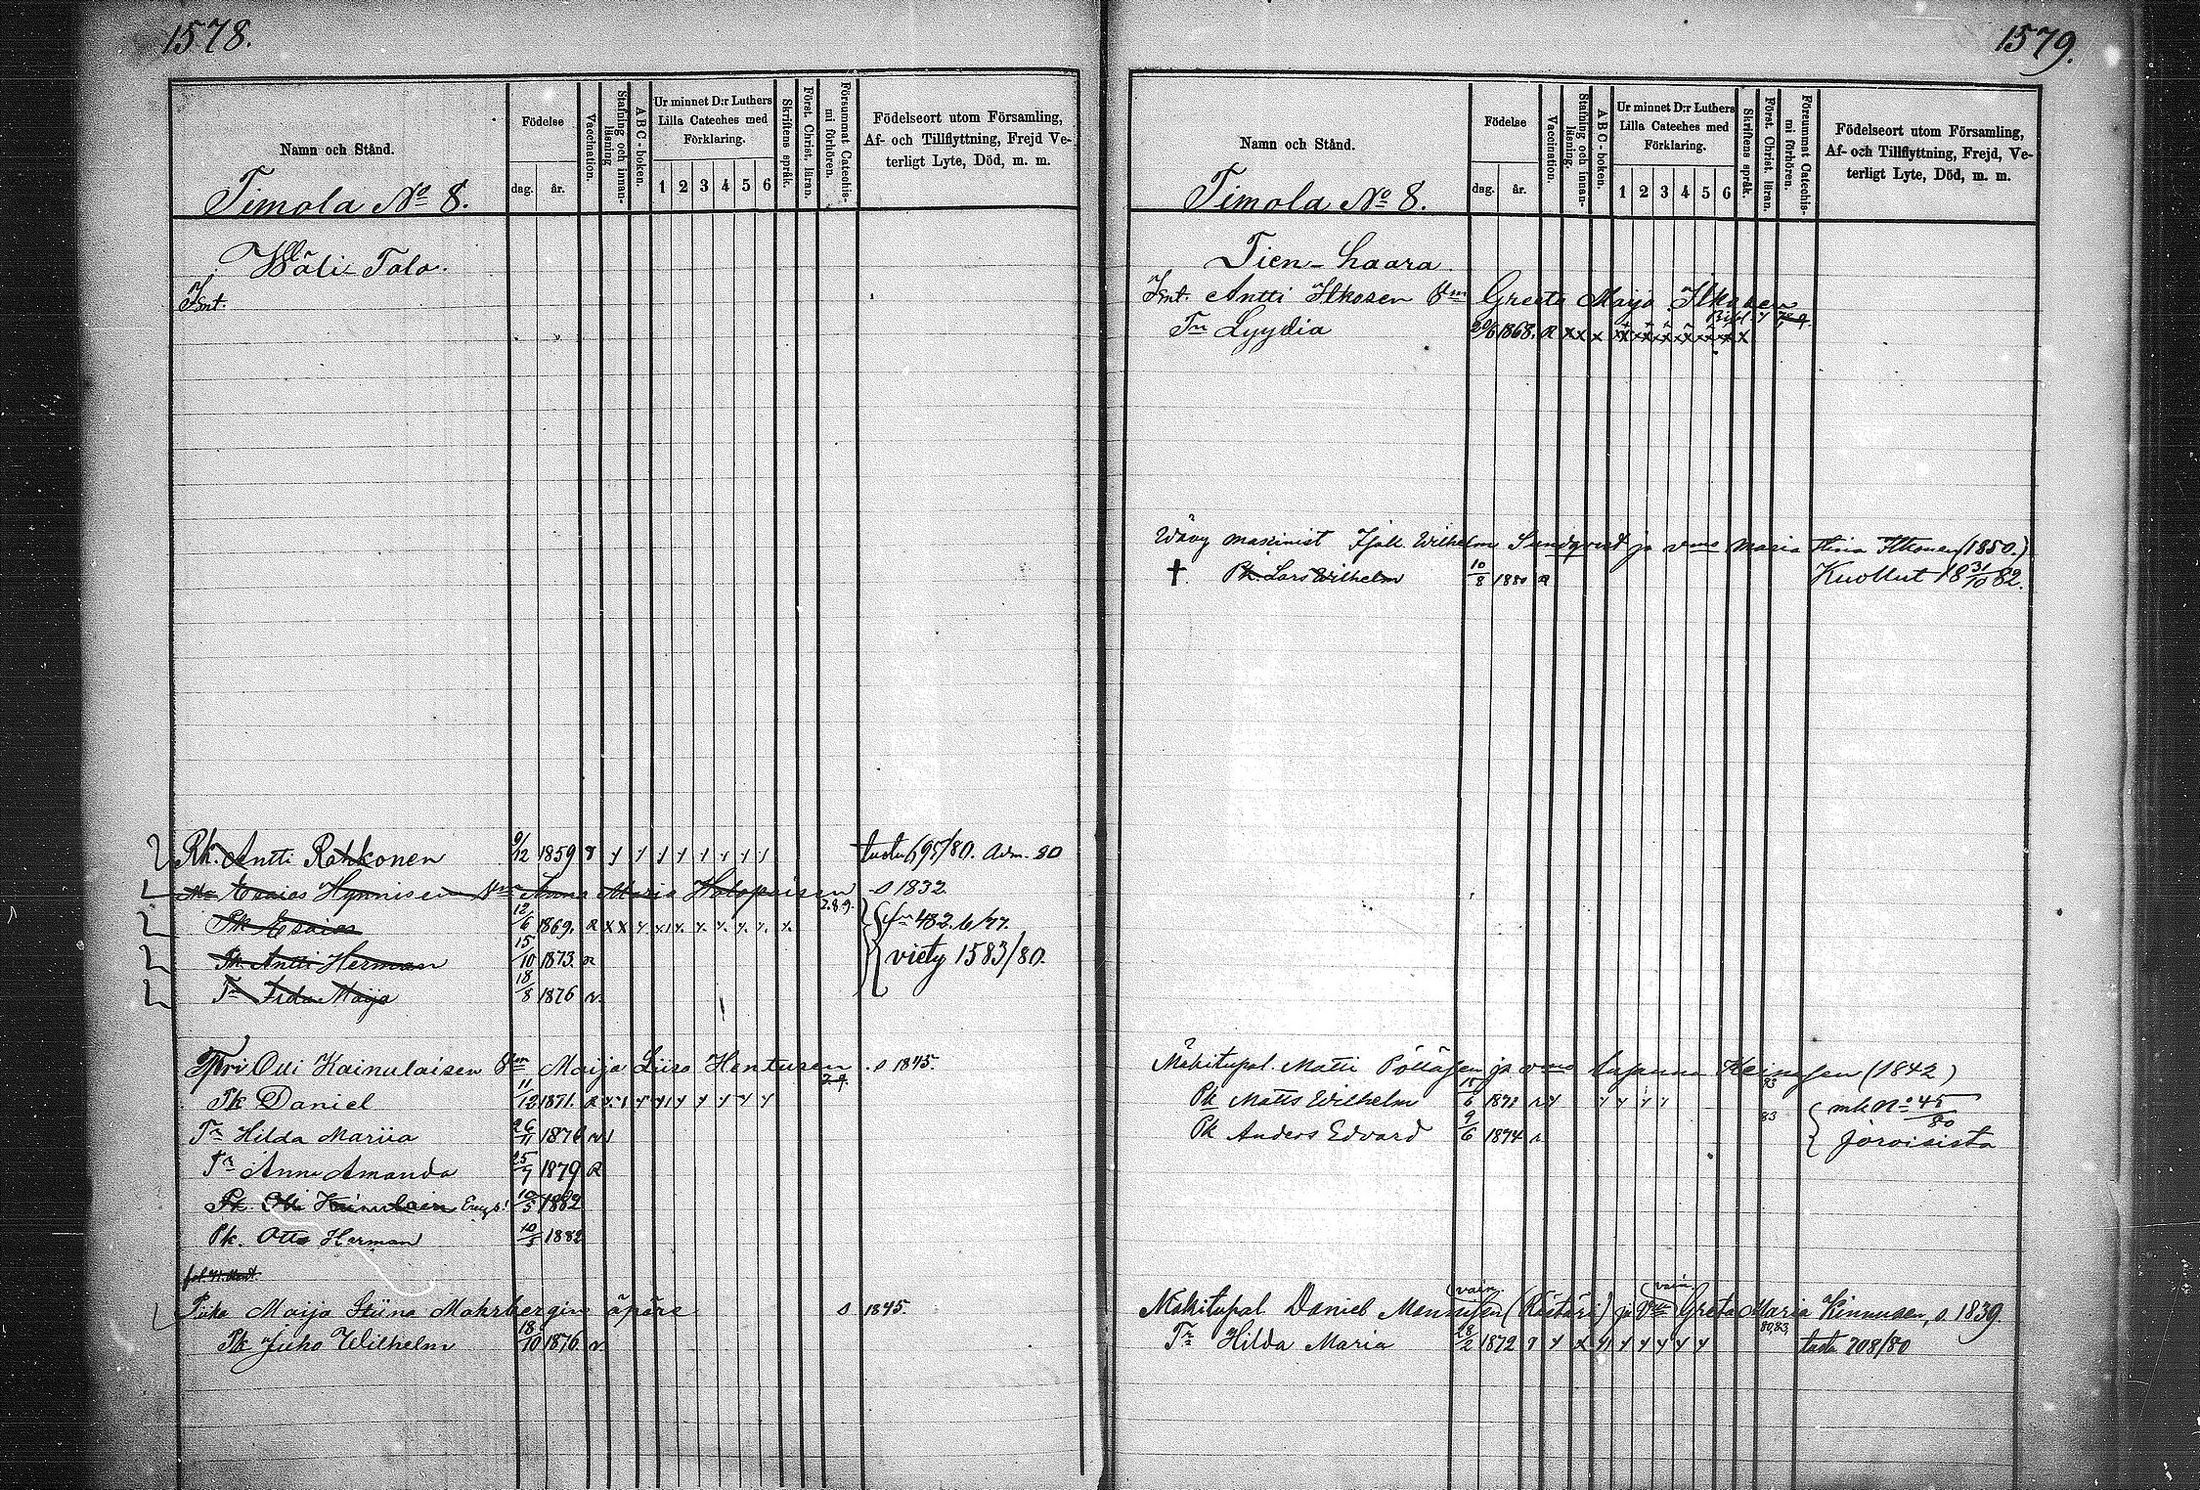 1578.
Namn och Stånd.
Födelse
dag.
år.
Vaccination.
Stafning och innan-
läsning
ABC-boken.
Ur minnet D:r Luthers
Lilla Cateches med
Förklaring.
1 2 3 4 5 6
Skriftens språk.
Först. Christ. läran.
Försummat Catechis-
mi förhören.
Födelseort utom Församling,
Af- och Tillflyttning, Frejd Ve-
terligt Lyte, Död, m. m.
Timola No 8.
Wäli-Talo.
Pk. Antti Rahkonen 9/12 1859 tästä 695/80. Adm. 80
Esaias Hynnisen Vmo Anna Maria Holopaisen s 1832
Pk Esaias 12/6 1869. 7.8.9. 482.6/77.
Pk Antti Herman 15/10 1873 viety 1583/80.
Tr Fida Maija 18/8 1876
Olli Kainulaisen Vmo Maija Liisa Hentusen s 1845.
Pk Daniel 11/12 1871. 7.9.
Tr Hilda Mariia 26/11 1876
Tr Anna Amanda 25/7 1879
Pk Olli Kainulain 10/5 1882
Pk. Otto Herman 10/5 1882
Piika Maija Stiina Mohrbergin äpärä s 1845.
Pk Juho Wilhelm 18/10 1876
1579.
Namn och Stånd.
Födelse
dag.
år.
Vaccination.
Stafning och innan-
läsning.
ABC-boken.
Ur minnet D:r Luthers
Lilla Cateches med
Förklaring.
1 2 3 4 5 6
Skriftens språk.
Först. Christ. läran.
Försummat Catechis-
mi förhören.
Födelseort utom Församling,
Af- och Tillflyttning, Frejd, Ve-
terligt Lyte, Död, m. m.
Timola No 8.
Tien-haara
Antti Ilkosen Vmo Greeta Maija Ilkosen
Tr Lyydia 1868.
Wävy masinist Wilhelm Sundqvist ja vmo Maria Ilkonen (1850.)
† Pk Lars Wilhelm 10/8 1880 Kuollut 18 31/10 82.
Mäkitupal. Matti Pöllösen ja vmo Susanna Heinosen (1842)
Pk Matts Wilhelm 15/6 1872 83 mk No 45/80
Pk Anders Edvard 9/6 1874 83 Joroisista
vain vain
Mäkitupal Daniel Mannisen (Räätäri) ja Vmo Greta Maria Kinnusen, s. 1839.
Tr Hilda Maria 28/2 1872 80,83, tästä 708/80